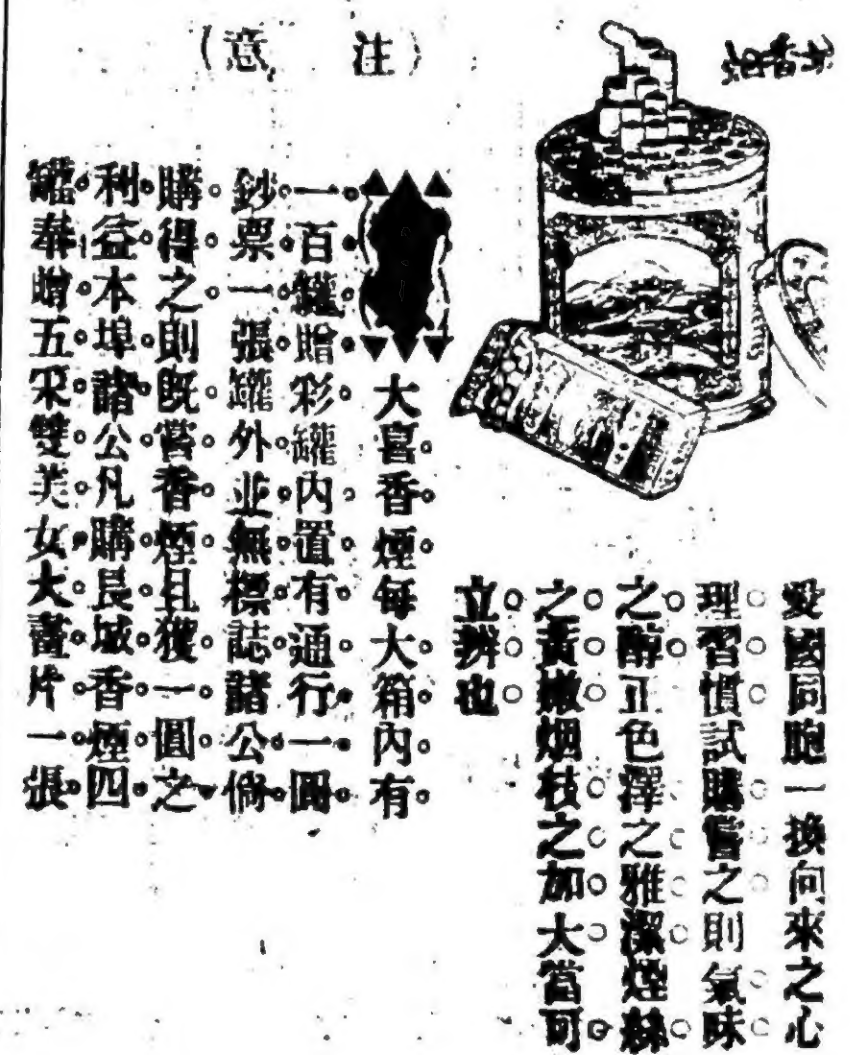 (注意)
愛國同胞一換向來之心
理習慣試購嘗之則氣味
之醇正色澤之雅潔煙絲
之黃嫩烟枝之加大當可
立辨也
大喜香煙每大箱內有
一百罐贈彩罐內置有通行一圓
鈔票一張罐外並無標誌諸公倘
購得之則既嘗香煙且獲一圓之
利益本埠諸公凡購長城香煙四
罐奉贈五釆雙美女大畫片一張